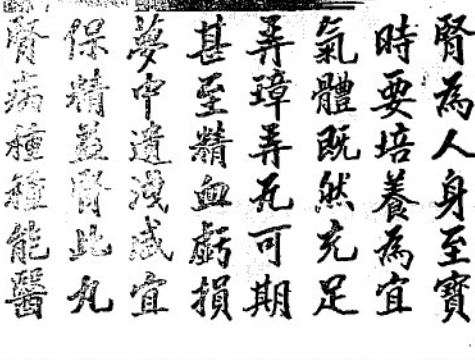 腎為人身至寶
時要培養為宜
氣體既然充足
弄璋弄瓦可期
甚至精血虧損
夢中遺洩咸宜
保精益腎此丸
腎病種種能醫